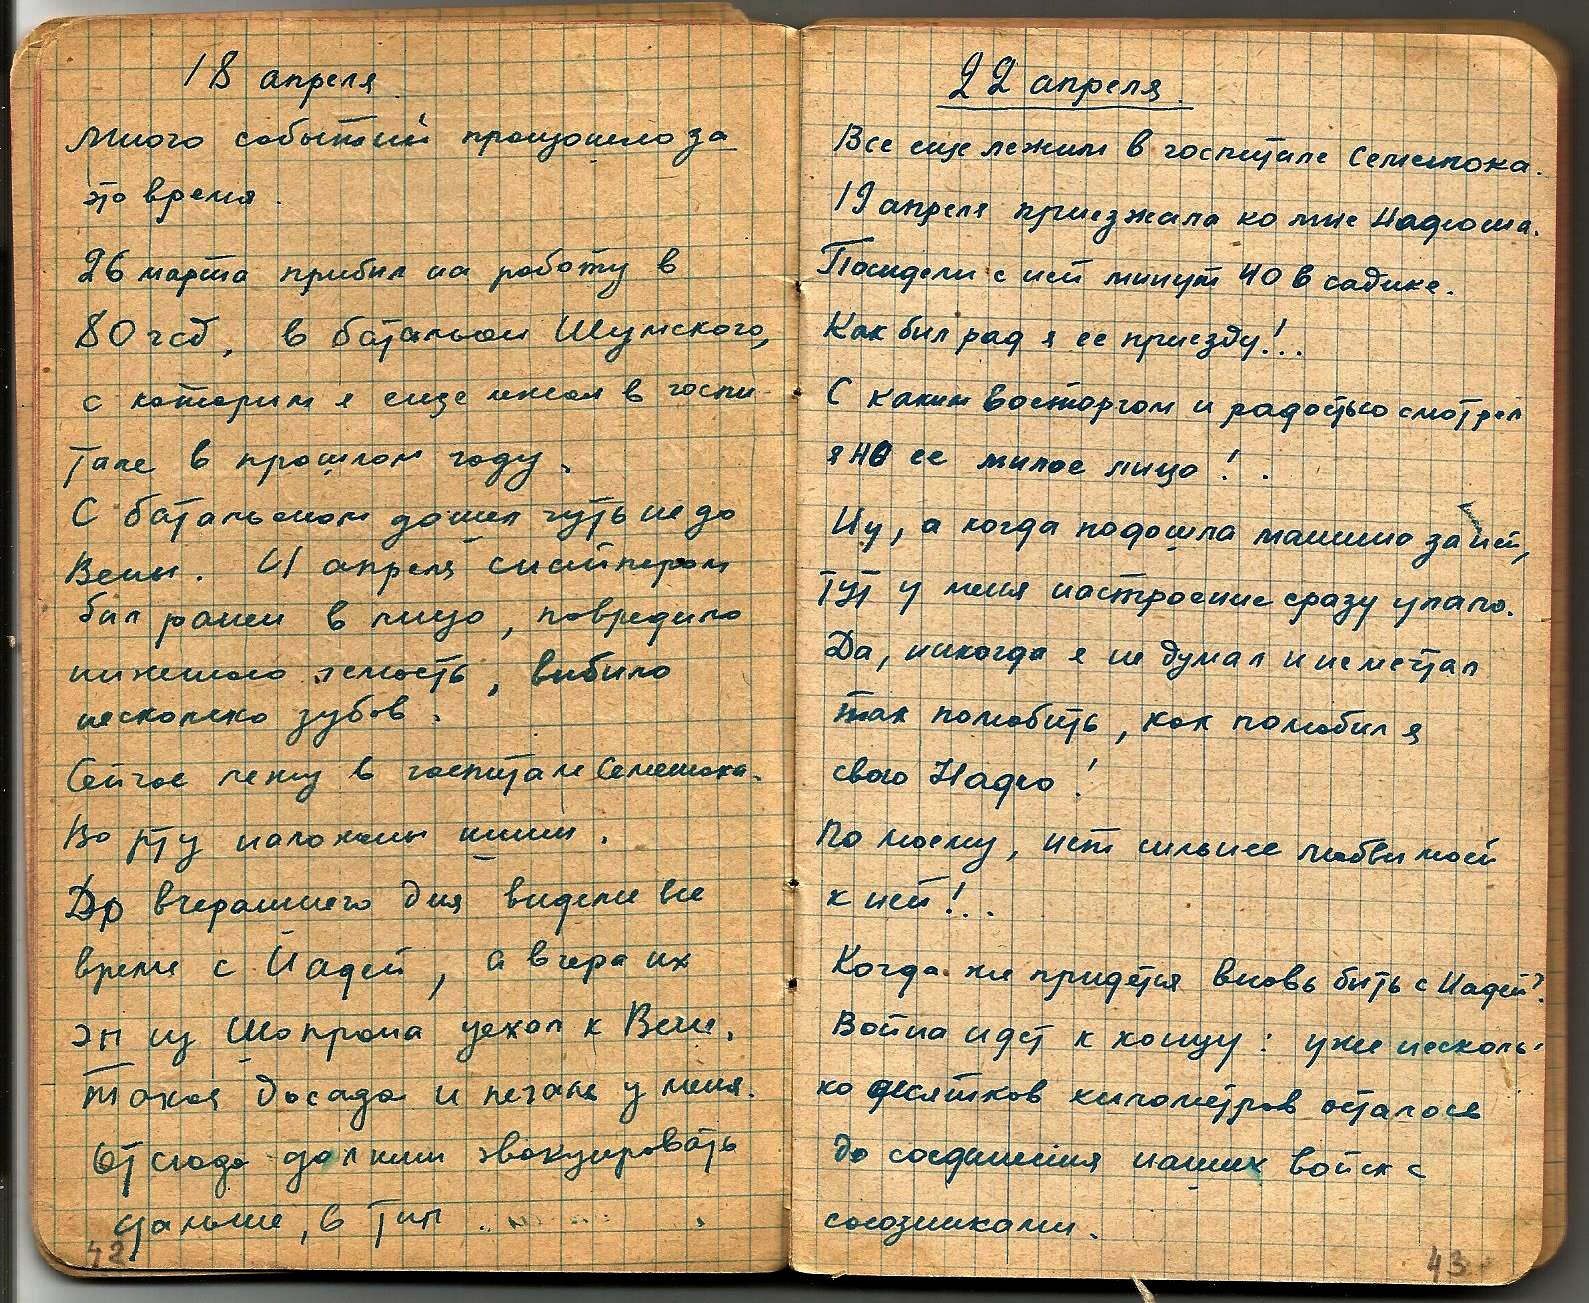 18 апреля
Много событий произошло за
это время.
26 марта прибыл на работу в
80 гсд, в батальон Шумского,
с которым я еще лежал в госпи
тале в прошлом году.
С батальоном дошел чуть не до
Вены. 4 апреля снайпером
был ранен в лицо, повредило
нижнюю челюсть, выбило
несколько зубов.
Сейчас лежу в госпитале Семенюка.
Во рту наложены шины.
До вчерашнего дня видели все
время с Надей, а вчера их
эп из Шопрона уехал к Вене.
Такая досада и печаль у меня.
Отсюда должны эвакуировать
дальше, в тыл
42
22 апреля.
Все еще лежим в госпитале Семенюка.
19 апреля приезжала ко мне Надюша.
Посидели с ней минут 40 в садике.
Как был рад я ее приезду!..
С каким восторгом и радостью смотрел
я на ее милое лицо!..
Ну, а когда подошла машина за ней,
тут у меня настроение сразу упало.
Да, никогда я не думал и не мечтал
так полюбить, как полюбил я
свою Надю!
По моему, нет сильнее любви моей
к ней!..
Когда же придется вновь быть с Надей?
Война идет к концу: уже несколь-
ко десятков километров осталось
до соединения наших войск с
союзниками.
43